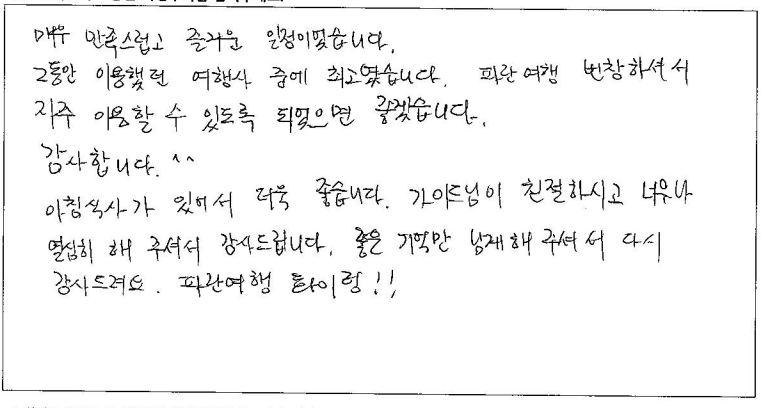 매우 만족스럽고 즐거운 일정이었습니다.
그동안 이용했던 여행사 중에 최고였습니다. 파란여행 번창하셔서
자주 이용할 수 있도록 되었으면 좋겠습니다.
감사합니다. ^^
아침식사가 있어서 더욱 좋습니다. 가이드님이 친절하시고 너무나
열심히 해 주셔서 감사드립니다. 좋은 기억만 남게 해 주셔서 다시
감사드려요. 파란여행 화이팅!!